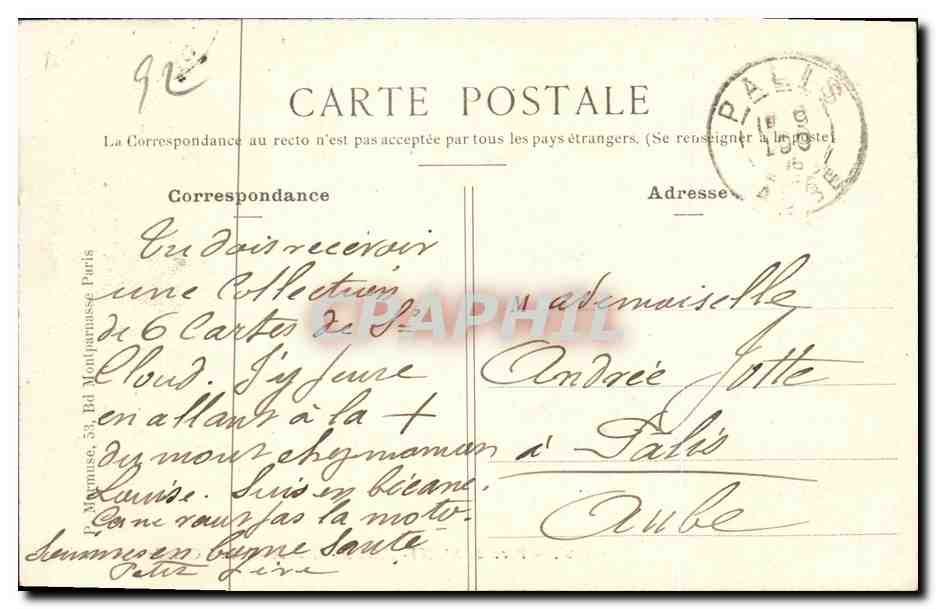 92
CARTE POSTALE
La Correspondance au recto n'est pas acceptée par tous les pays étrangers. (Se renseigner à la poste)
PALIS
AUBE
Correspondance
Adresse
Tu dois recevoir
une Collection
de 6 Cartes de St
Cloud. J'y
en allant à la +
du mont chez maman
Louise. Suis en bécane.
Ça ne vaut pas la moto.
Sommes en bonne Santé
Petit
Mademoiselle
Andrée Jotte
à Palis
Aube
P. Marmuse, 53, Bd Montparnasse Paris
CPAPHIL